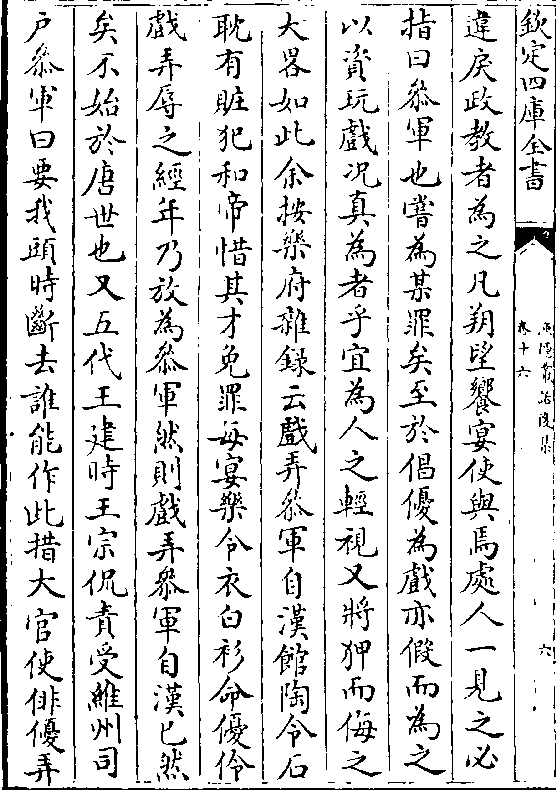 欽定四庫全書
卷十六
六
違戾政教者為之凡朔望饗宴使與焉處人一見之必
指曰叅軍也嘗為某罪矣至於倡優為戲亦假而為之
以資玩戲况真為者乎宜為人之輕視又將狎而侮之
大畧如此余按樂府雜録云戲弄叅軍自漢館陶令石
耽有贓犯和帝惜其才免罪每宴樂令衣白衫命優伶
戲弄辱之經年乃放為叅軍然則戲弄叅軍自漢已然
矣不始於唐世也又五代王建時王宗侃責受維州司
户叅軍曰要我頭時斷去誰能作此措大官使俳優弄